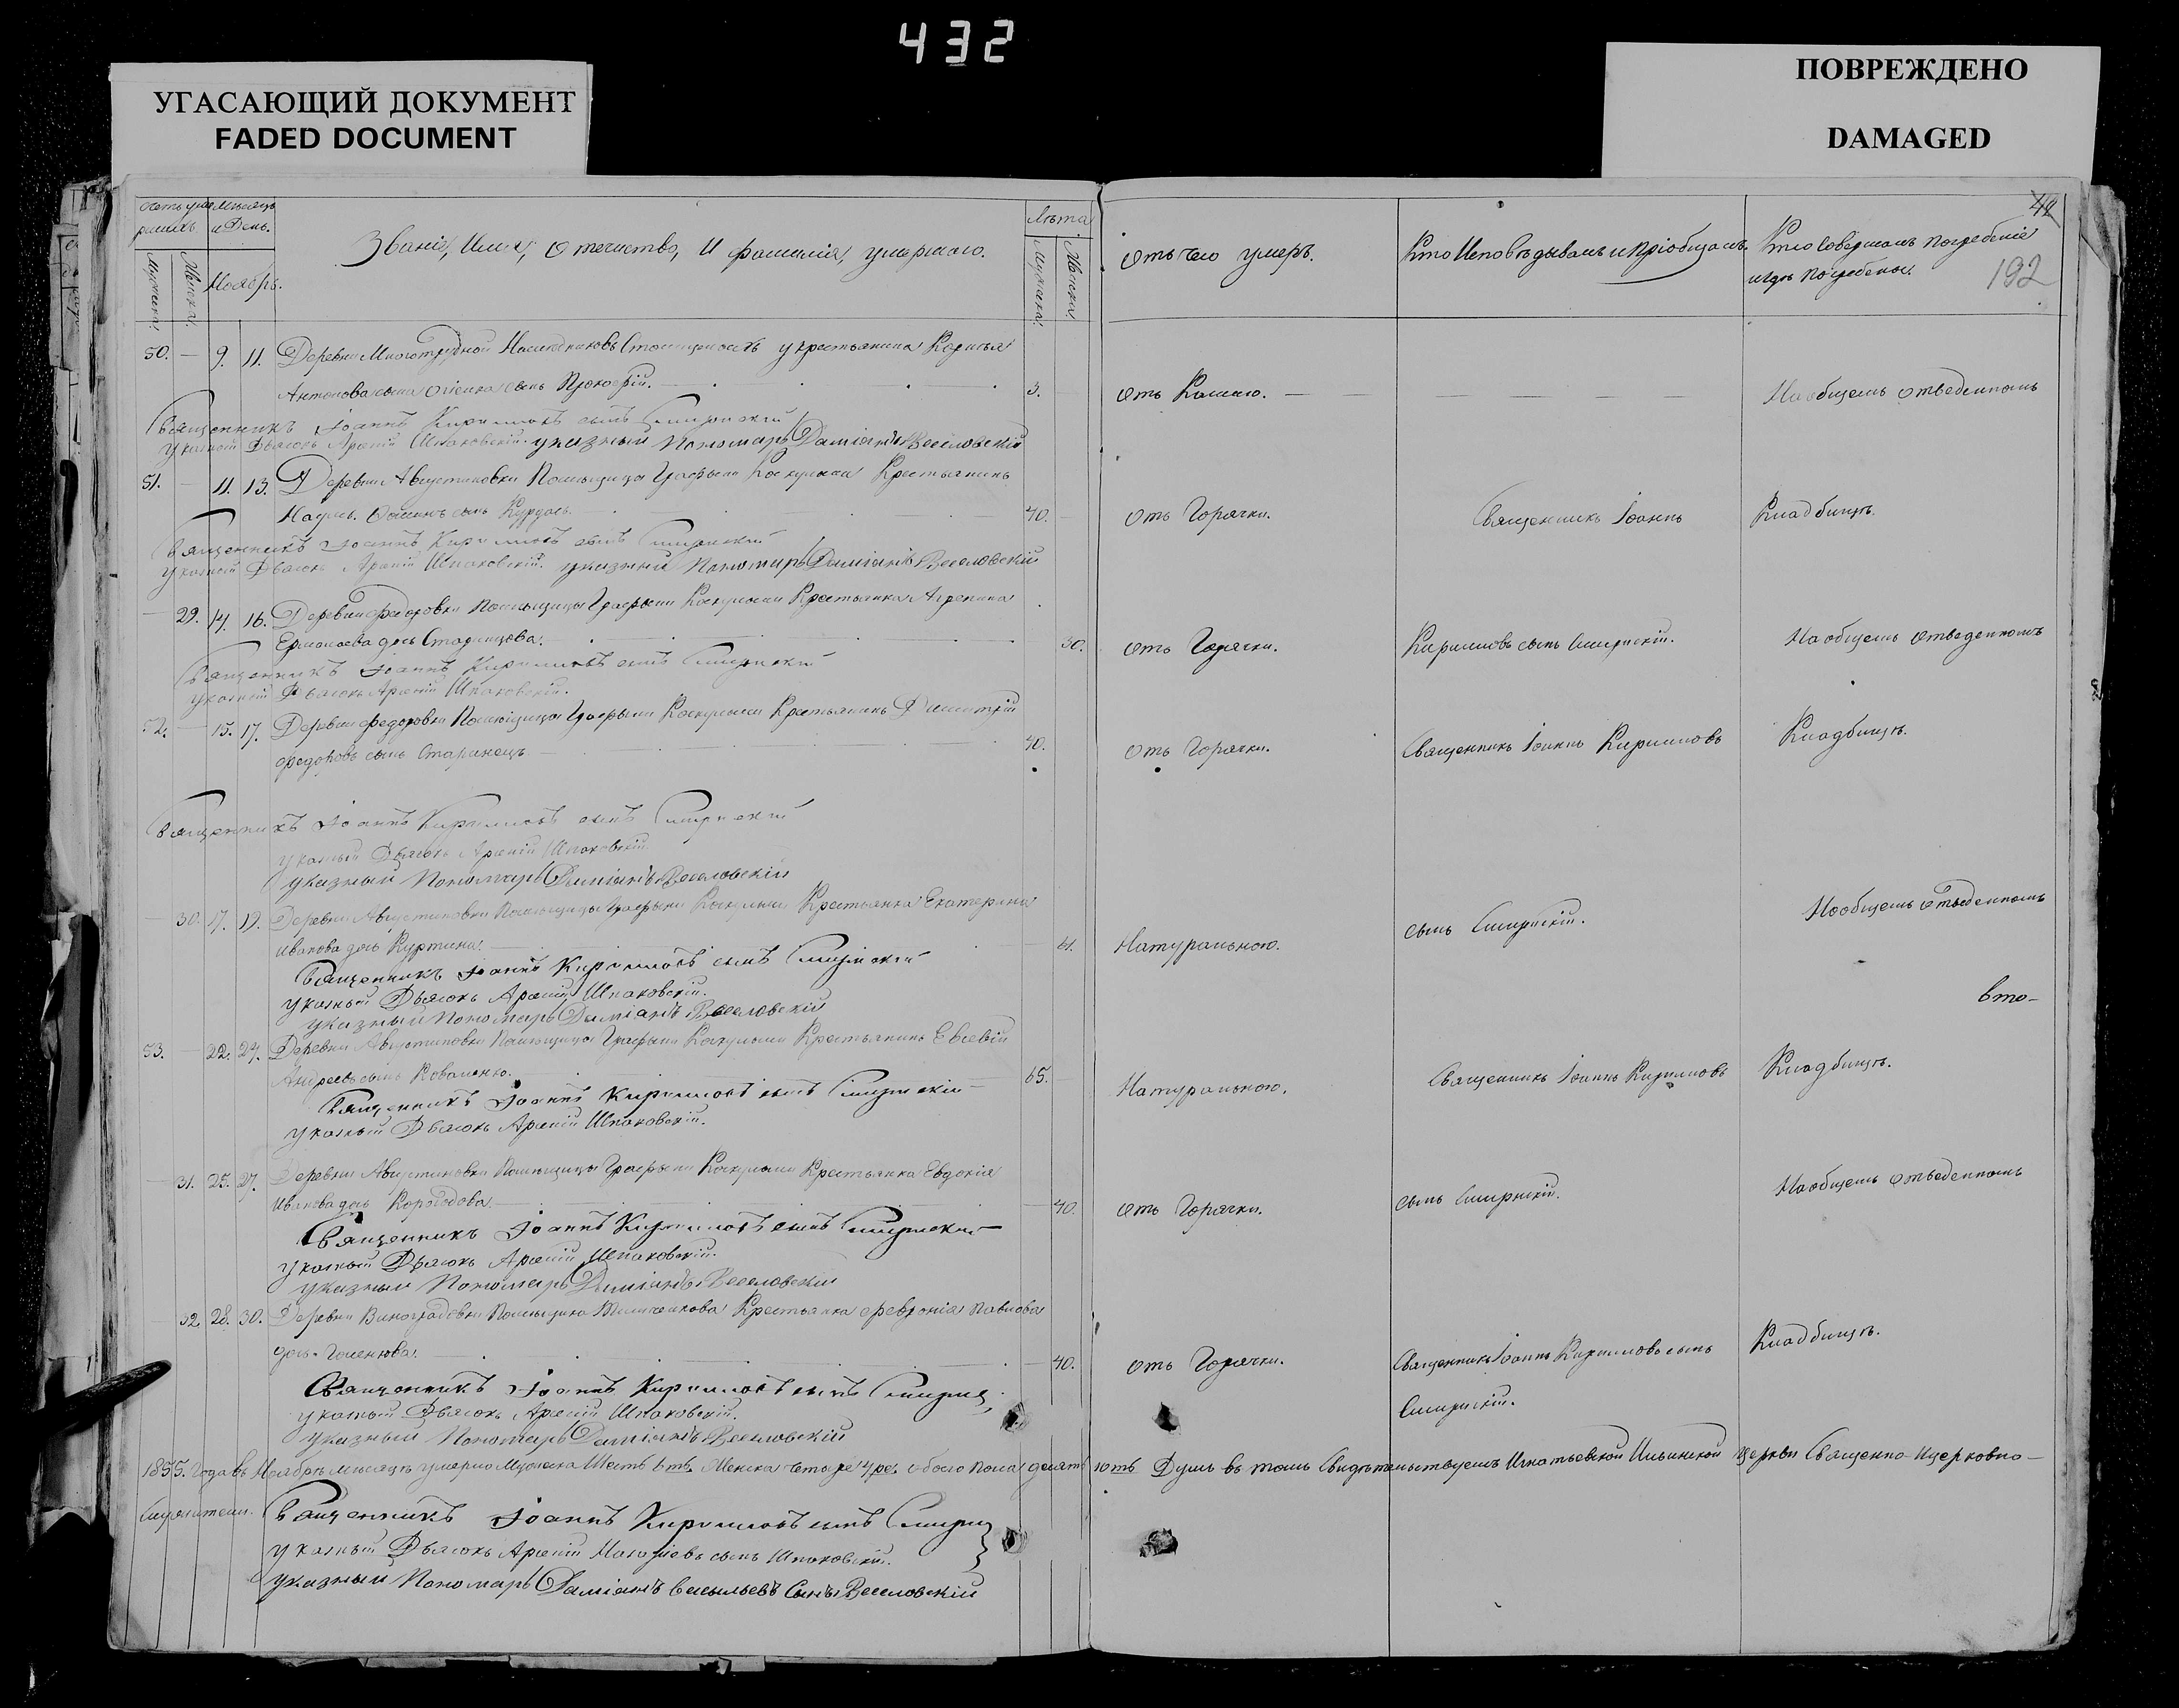 432
УГАСАЮЩИЙ ДОКУМЕНТ
FADED DOCUMENT
ПОВРЕЖДЕНО
DAMAGED
42
192
Счетъ умершихъ
Мѣсяцъ и День.
Званіе, Имя, Отчество, И фамилія, умершаго.
Лѣта
Мужеска.
Женска.
Ноябрь.
Мужеска.
Женска.
Отъ чего умеръ.
Кто Исповѣдывалъ и Пріобщалъ.
Кто Совершалъ погребеніе
и гдѣ погребены.
50. — 9. 11. Деревни Многотрудной Наслѣдниковъ у крестьянина
Антонова сына сынъ Прокофій. — 3. Отъ Кашлю. — — — — — — На общемъ отведенномъ
Священникъ Іоаннъ Кирилловъ сынъ Смирнскій
указный Дьячокъ Арсеній Шпаковскій. указный Пономарь Даміанъ Веселовскій
51. — 11. 13. Деревни Августиновки Помѣщицы Графини Крестьянинъ
Наумъ сынъ 40. Отъ Горячки. Священникъ Іоаннъ Кладбищѣ.
Священникъ Іоаннъ Кирилловъ сынъ Смирнскій
указный Дьячокъ Арсеній Шпаковскій. указный Пономарь Даміанъ Веселовскій
— 29. 14. 16. Деревни Федоровки Помѣщицы Графини Крестьянка Агрепина
Ермолаева дочь Старицова. 30. Отъ Горячки. Кирилловъ сынъ Смирнскій. На общемъ отведенномъ
Священникъ Іоаннъ Кирилловъ сынъ Смирнскій
указный Дьячокъ Арсеній Шпаковскій.
52. — 15. 17. Деревни Федоровки Помѣщицы Графини Крестьянинъ Димитрій
Федоровъ сынъ Старинецъ — 40. Отъ Горячки. Священникъ Іоаннъ Кирилловъ Кладбищѣ.
Священникъ Іоаннъ Кирилловъ сынъ Смирнскій
указный Дьячокъ Арсеній Шпаковскій
указный Пономарь Даміанъ Веселовскій
— 30. 17. 19. Деревни Августиновки Помѣщицы Графини Крестьянка Екатерина
Иванова дочь Куртина. 61. Натуральною. сынъ Смирнскій. На общемъ отведенномъ
Священникъ Іоаннъ Кирилловъ сынъ Смирнскій
указный Дьячокъ Арсеній Шпаковскій.
указный Пономарь Даміанъ Веселовскій
вто-
53. — 22. 24. Деревни Августиновки Помѣщицы Графини Крестьянинъ Евсевій
Андреевъ сынъ Коваленко. 65. Натуральною. Священникъ Іоаннъ Кирилловъ Кладбищѣ.
Священникъ Іоаннъ Кирилловъ сынъ Смирнскій
указный Дьячокъ Арсеній Шпаковскій.
— 31. 25. 27. Деревни Августиновки Помѣщицы Графини Крестьянка Евдокія
Иванова дочь Корогодова. — 40. Отъ Горячки. сынъ Смирнскій. На общемъ отведенномъ
Священникъ Іоаннъ Кирилловъ сынъ Смирнскій
указный Дьячокъ Арсеній Шпаковскій.
указный Пономарь Даміанъ Веселовскій
— 32. 28. 30. Деревни Виноградовки Помѣщика Крестьянка Февронія Павлова
дочь — 40. Отъ Горячки. Священникъ Іоаннъ Кирилловъ сынъ Кладбищѣ.
Смирнскій.
Священникъ Іоаннъ Кирилловъ сынъ
указный Дьячокъ Арсеній Шпаковскій.
указный Пономарь Даміанъ Веселовскій
1855. Года въ Ноябрѣ мѣсяцѣ умерло Мужеска Шесть 6ть, Женска четыре 4ре, обоего пола десять 10ть Душъ въ томъ Свидѣтельствуемъ Игнатьевской Ильинской Церкви Священно-церковно-
служители.
Священникъ Іоаннъ Кирилловъ сынъ
указный Дьячокъ Арсеній сынъ Шпаковскій.
указный Пономарь Даміанъ Васильевъ Сынъ Веселовскій